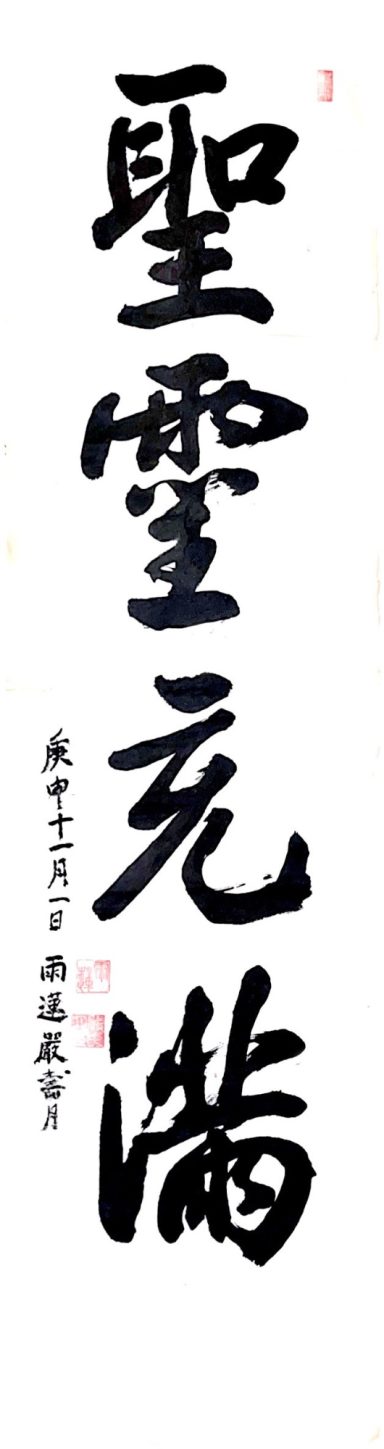 聖靈充滿
庚申十一月一日 雨蓮嚴壽月